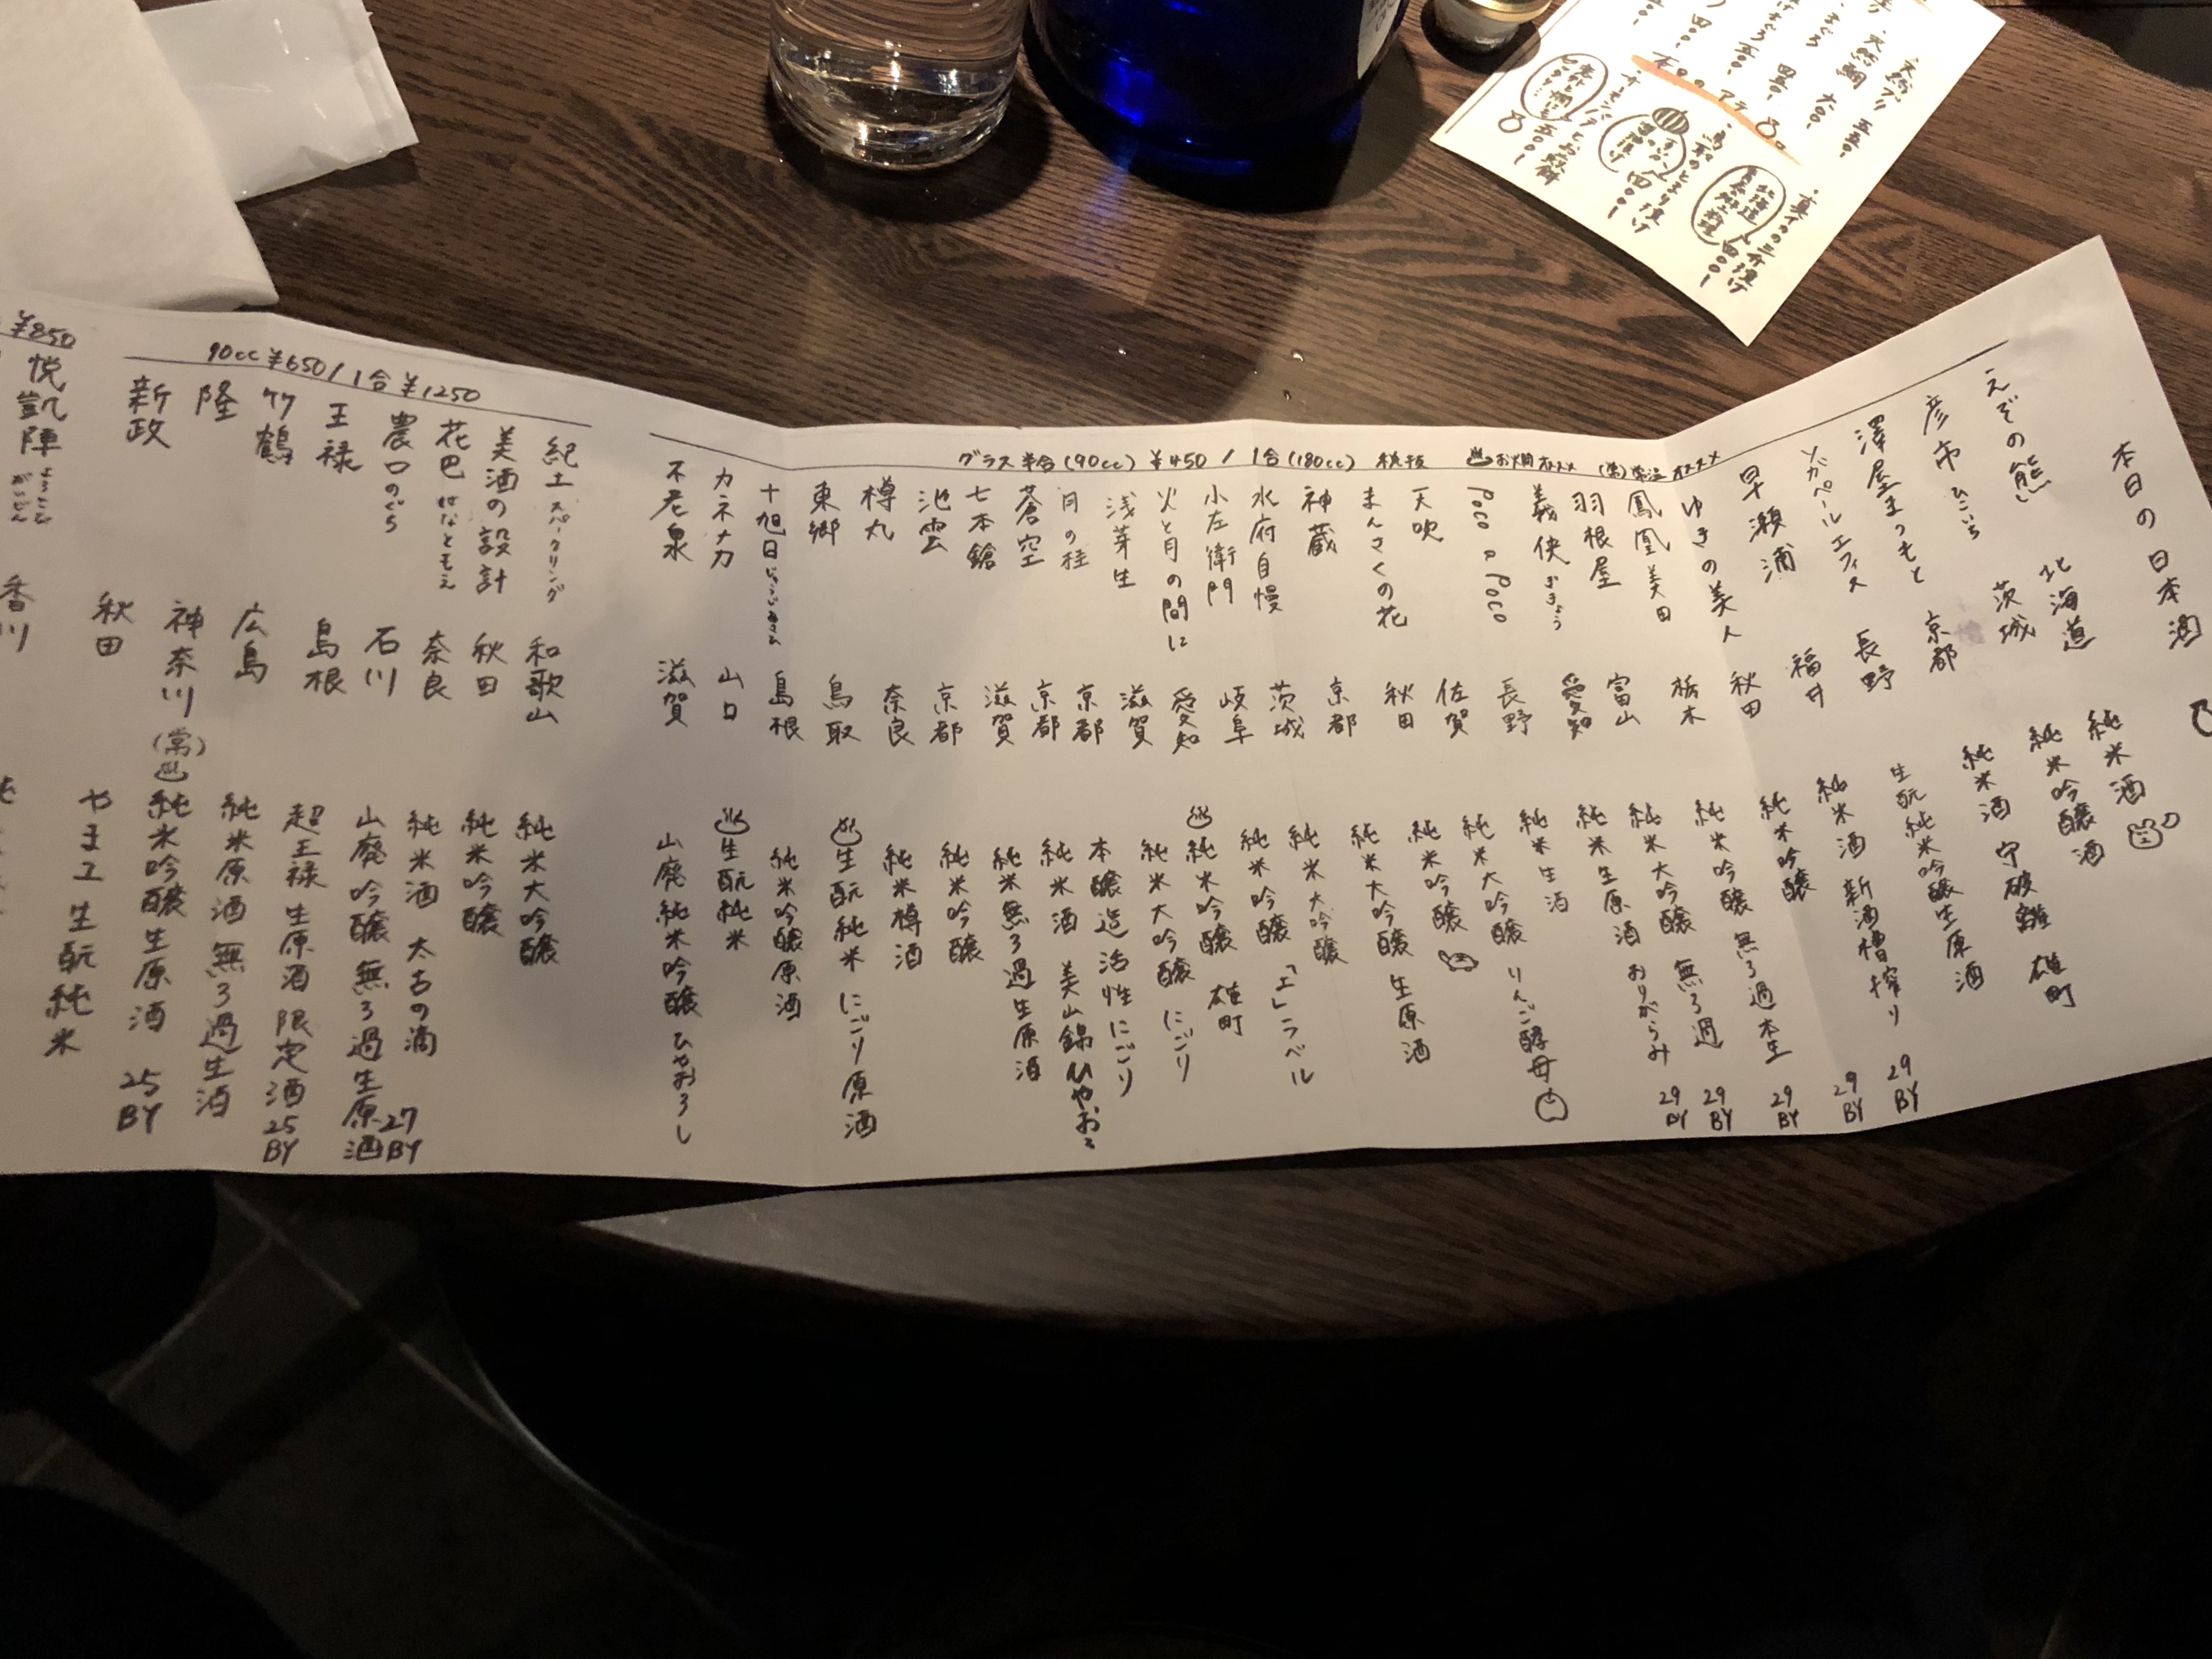 本日の日本酒
グラス半合(90cc) ¥450 / 1合(180cc) 税抜 お燗オススメ (常)常温オススメ
えぞの熊 北海道 純米酒
彦市 ひこいち 茨城 純米吟醸酒
澤屋まつもと 京都 純米酒 守破離 雄町
ソガペールエフィス 長野 生酛純米吟醸生原酒
早瀬浦 福井 純米酒 新酒槽搾り 29BY
ゆきの美人 秋田 純米吟醸 29BY
鳳凰美田 栃木 純米吟醸 無ろ過本生 29BY
羽根屋 富山 純米大吟醸 無ろ過 29BY
義侠 ぎきょう 愛知 純米生原酒 おりがらみ 29BY
Poco a Poco 長野 純米生酒
天吹 佐賀 純米大吟醸 りんご酵母
まんさくの花 秋田 純米吟醸
神蔵 京都 純米大吟醸 生原酒
水府自慢 茨城 純米大吟醸
小左衛門 岐阜 純米吟醸 「工」ラベル
火と月の間に 愛知 純米吟醸 雄町
浅芽生 滋賀 純米大吟醸 にごり
月の桂 京都 本醸造活性にごり
蒼空 京都 純米酒 美山錦 ひやおろ
七本鎗 滋賀 純米無ろ過生原酒
池雲 京都 純米吟醸
樽丸 奈良 純米樽酒
東郷 鳥取 生酛純米 にごり原酒
十旭日 じゅうじあさひ 島根 純米吟醸原酒
カネナカ 山口 生酛純米
不老泉 滋賀 山廃純米吟醸 ひやおろし
90cc ¥650 / 1合 ¥1250
紀土 スパークリング 和歌山 純米大吟醸
美酒の設計 秋田 純米吟醸
花巴 はなともえ 奈良 純米酒 太古の滴 27BY
農口 のぐち 石川 山廃吟醸 無ろ過生原酒
王禄 島根 超王禄 生原酒 限定酒 25BY
竹鶴 広島 純米原酒 無ろ過生酒
隆 神奈川 (常) 純米吟醸生原酒 25BY
新政 秋田 やまユ 生酛純米
¥850
悦凱陣 よろこび がいじん 香川
・天然ブリ 五五〇
・天然鯛 六〇〇
まぐろ 四五〇
五〇〇
四〇〇
本日のアラ
・真イカの三升漬け 四〇〇
北海道
・鳥取のとまり漬け 四〇〇
・サーモンバタとお煎餅 五〇〇